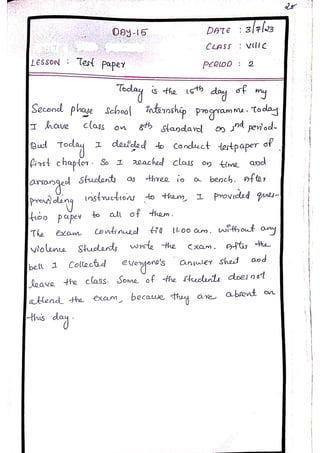 28
DAY-15
DATE : 3/7/23
CLASS : VIII C
LESSON : Test paper
PERIOD : 2
Today is the 15th day of my
Second phase School internship programme. Today
I have class on 8th standard on 2nd period.
But Today I decided to conduct testpaper of
first chapter. So I reached class on time and
arranged students as three in a bench. After
providing instructions to them, I provided ques-
tion paper to all of them.
The exam continued till 11.00 am. without any
violence students wrote the exam. After the
bell I collected everyone's answer sheet and
leave the class. Some of the students does not
attend the exam, because they are absent on
this day.